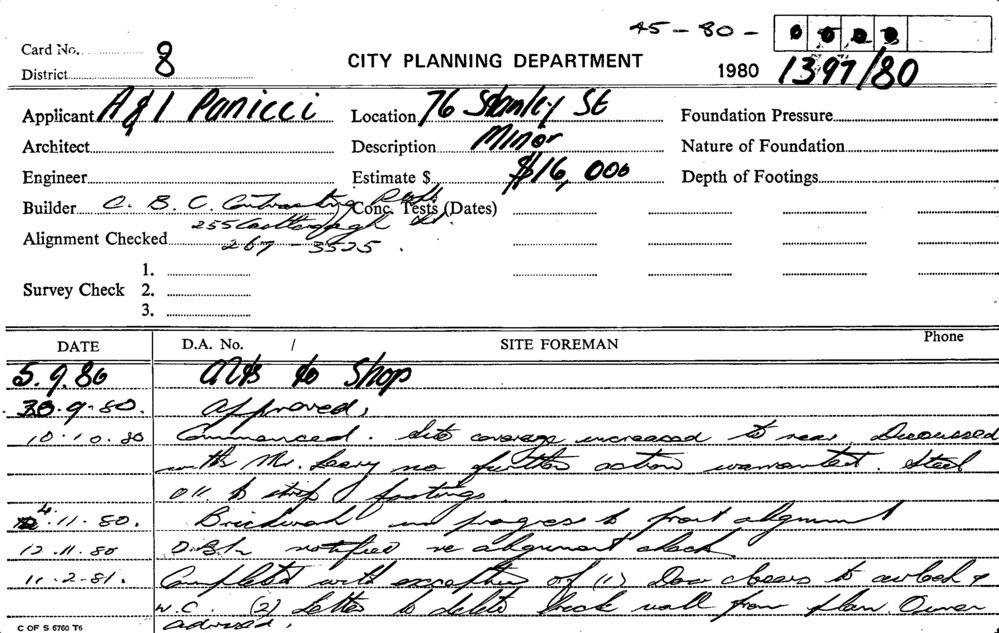 45 - 80 -
Card No. 8
District
CITY PLANNING DEPARTMENT
1980 1397/80
Applicant A & I Panicci Location 76 Stanley St Foundation Pressure
Architect Description Minor Nature of Foundation
Engineer Estimate $ $16,000 Depth of Footings
Builder C. B. C. Contracting P/L Conc. Tests (Dates)
255
Alignment Checked 267 - 3525.
1.
Survey Check 2.
3.
DATE D.A. No. / SITE FOREMAN Phone
5.9.80 Alts to Shop
30.9.80. Approved,
10.10.80 Commenced. Site coverage increased to rear. Discussed
with Mr. Leary no further action warranted. Steel
O.K. to strip footings.
4.11.80. Brickwork in progress to front alignment
12.11.80 notified re alignment check
11.2.81. Completed with exception of (1) Door to &
W.C. (2) Letter to delete back wall from plan Owner
advised.
C OF S 6760 T6